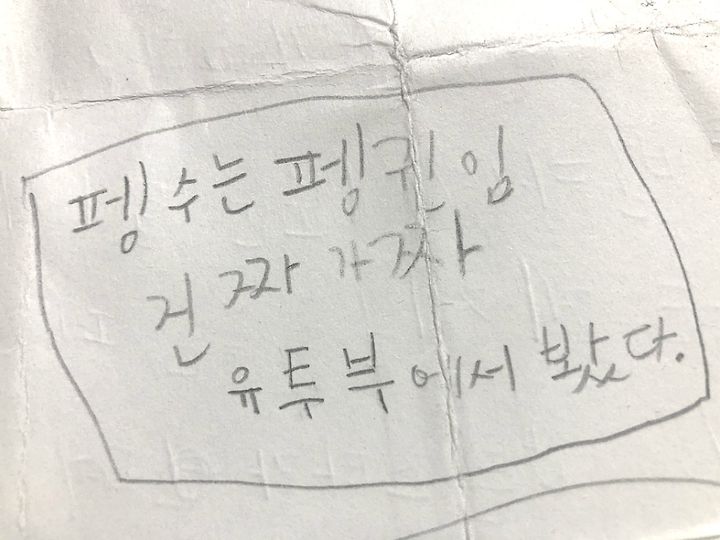 펭수는 펭귄임
진짜 가짜
유투부에서 봤다.